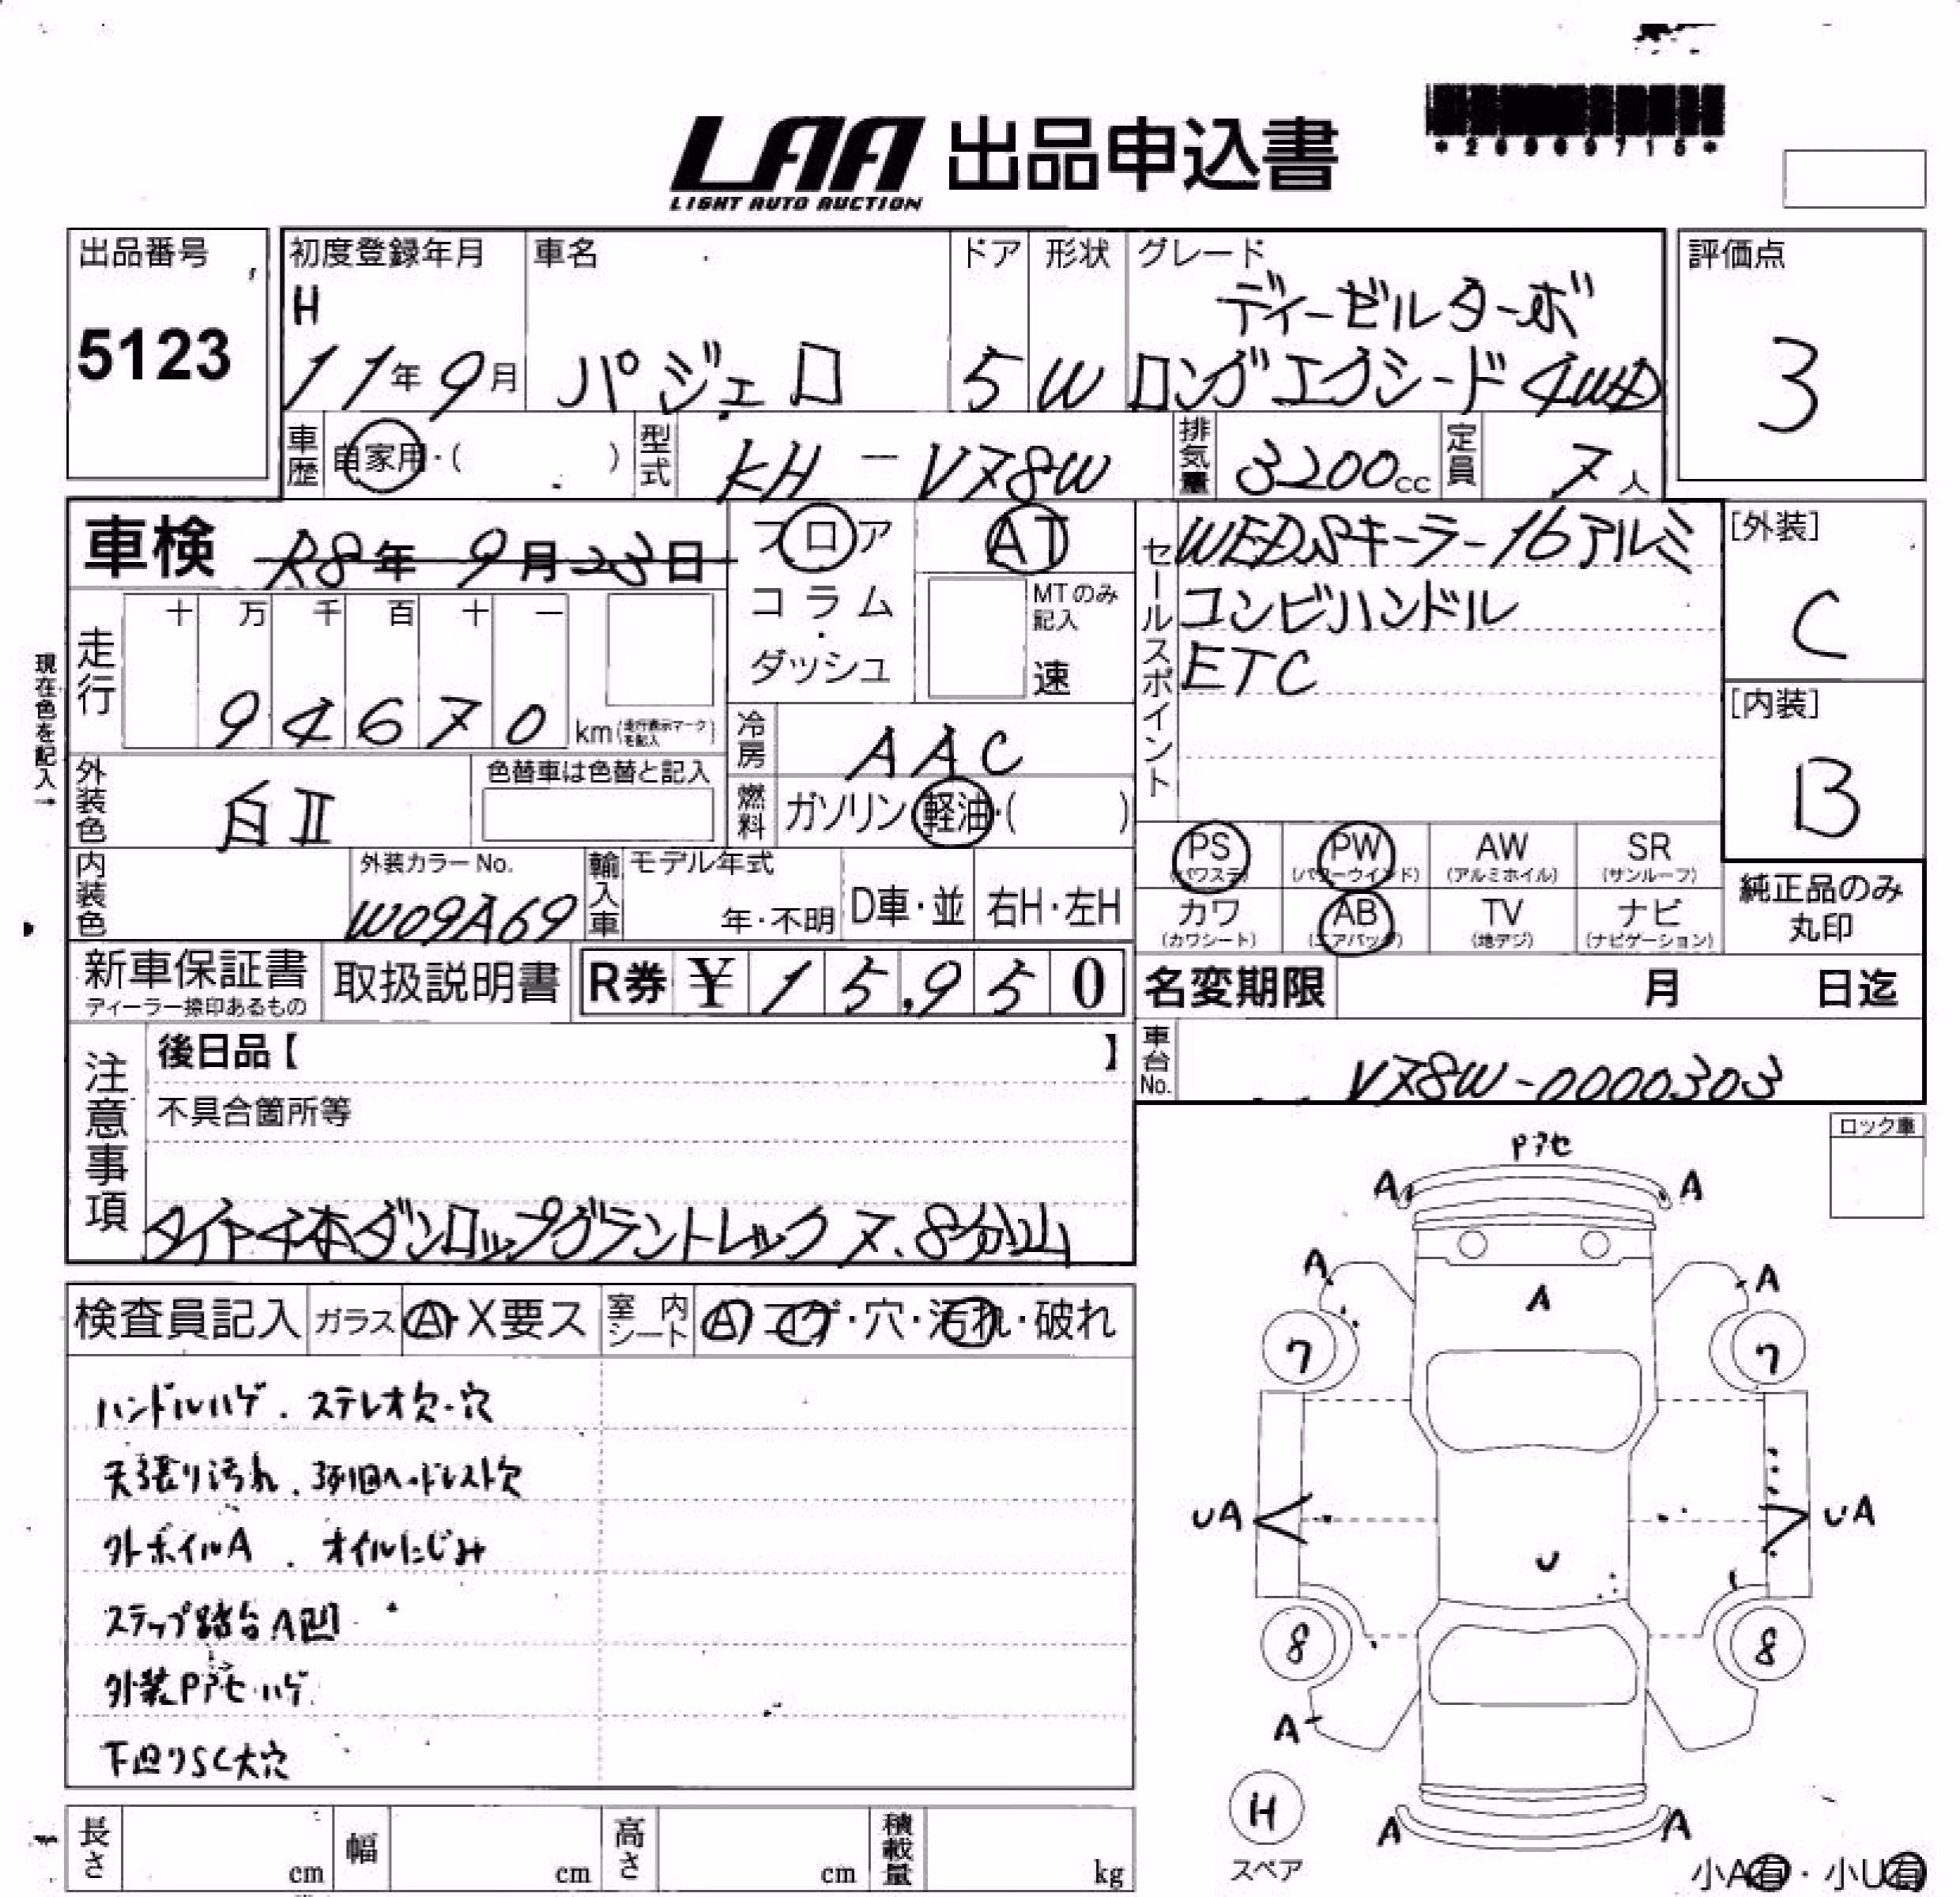 LAA 出品申込書
LIGHT AUTO AUCTION
出品番号
5123
初度登録年月
H
11年9月
車名
パジェロ
ドア
5
形状
W
グレード
ディーゼルターボ
ロングエクシード4WD
評価点
3
車歴 自家用・( )
型式 KH-V78W
排気量 3200cc
定員 7人
車検 R8年 9月23日
フロア
コラム
・
ダッシュ
AT
MTのみ
記入
速
セールスポイント
WEDSキーラー16アルミ
コンビハンドル
ETC
[外装]
C
[内装]
B
現在色を記入→
走行
十 万 千 百 十 一
9 4 6 7 0 km(走行表示マークを記入)
冷房 AAC
燃料 ガソリン・軽油・( )
外装色 白II
色替車は色替と記入
内装色
外装カラーNo.
W09A69
輸入車 モデル年式
年・不明 D車・並 右H・左H
PS
(パワステ)
PW
(パワーウインド)
AW
(アルミホイル)
SR
(サンルーフ)
カワ
(カワシート)
AB
(エアバッグ)
TV
(地デジ)
ナビ
(ナビゲーション)
純正品のみ
丸印
新車保証書
ディーラー捺印あるもの
取扱説明書
R券 ¥ 15,950
名変期限 月 日迄
車台No. V78W-0000303
注意事項
後日品【 】
不具合箇所等
タイヤ4本ダンロップグラントレック7、8分山
ロック車
検査員記入 ガラス A・X要ス 室内シート A・コゲ・穴・汚れ・破れ
ハンドルハゲ．ステレオ欠・穴
天張り汚れ．3列目ヘッドレスト欠
外ホイルA．オイルにじみ
ステップ踏台A凹
外装Pアセ・ハゲ
下廻りSC大穴
Pアセ
A A
A A
A
7 7
UA UA
U
8 8
A
H
スペア
A A
小A有・小U有
長さ cm 幅 cm 高さ cm 積載量 kg